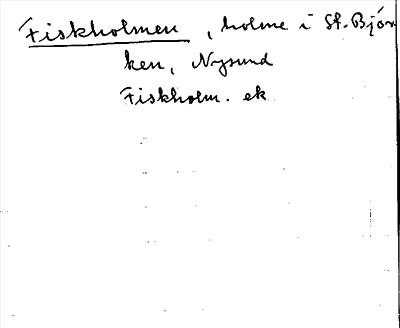 Fiskholmen, holme i St. Björ
ken, Nysund
Fiskholm. ek